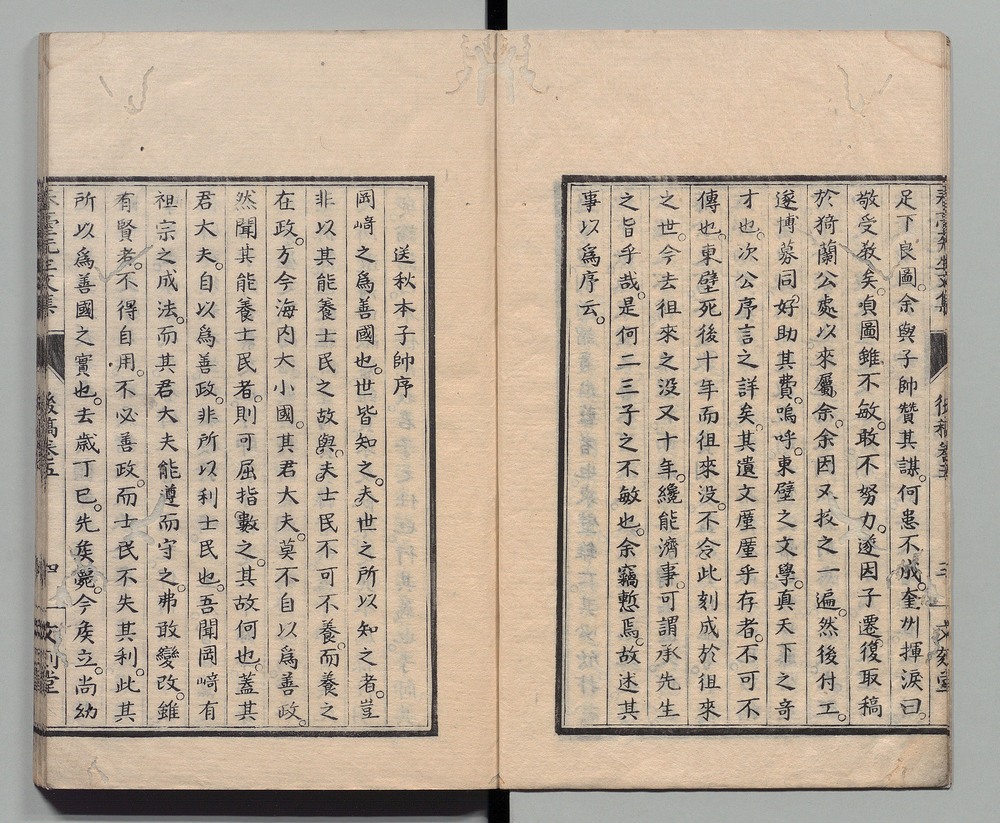 足下良圖余與子帥贊其謀何患不成奎州揮淚曰
敬受教矣貞圖雖不敏敢不努力遂因子遷復取稿
於猗蘭公處以來屬余余因又挍之一遍然後付工
遂博募同好助其費嗚呼東壁之文學真天下之奇
才也次公序言之詳矣其遺文厪厪乎存者不可不
傳也東壁死後十年而徂來没不令此刻成於徂來
之世今去徂來之没又十年纔能濟事可謂承先生
之旨乎哉是何二三子之不敏也余竊慙焉故述其
事以爲序云
送秋本子帥序
岡﨑之爲善國也世皆知之夫世之所以知之者豈
非以其能養士民之故與夫士民不可不養而養之
在政方今海内大小國其君大夫莫不自以爲善政
然聞其能養士民者則可屈指數之其故何也蓋其
君大夫自以爲善政非所以利士民也吾聞岡﨑有
祖宗之成法而其君大夫能遵而守之弗敢變改雖
有賢者不得自用不必善政而士民不失其利此其
所以爲善國之實也去歳丁巳先矦毙今矦立尚幼
後稿卷五
四